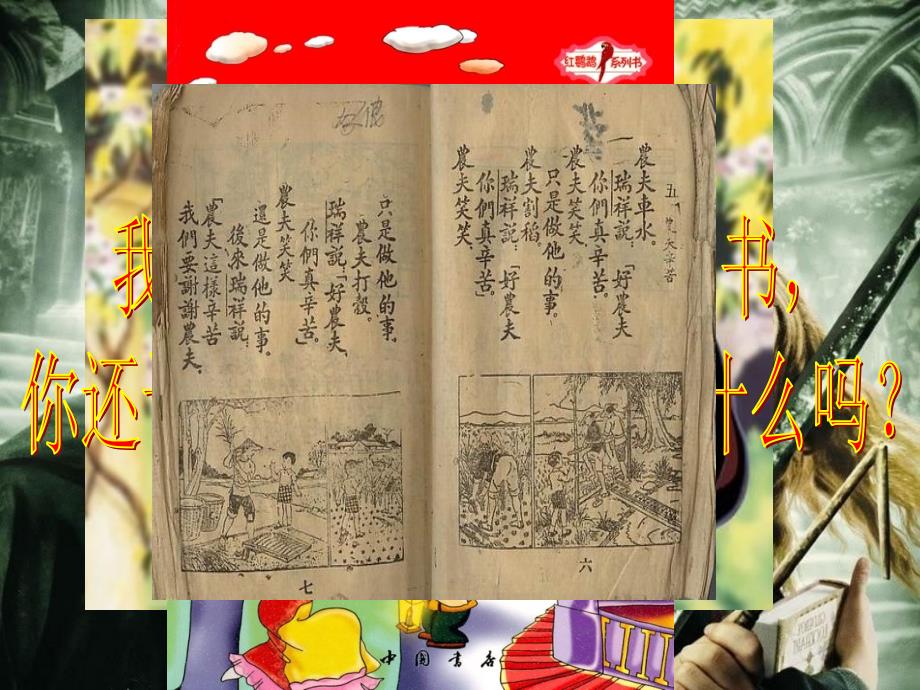 红鹦鹉
系列书
我
书,
你还
什么吗?
五
農夫車水。
瑞祥說:「好農夫
你們真辛苦。
農夫笑笑
只是做他的事。
農夫割稻
瑞祥說:「好農夫
你們真辛苦」。
農夫笑笑、
六
只是做他的事。
農夫打穀。
瑞祥說「好農夫、
你們真辛苦」。
農夫笑笑
還是做他的事。
後來瑞祥說:
「農夫這樣辛苦
我們要謝謝農夫、
七
中国书店